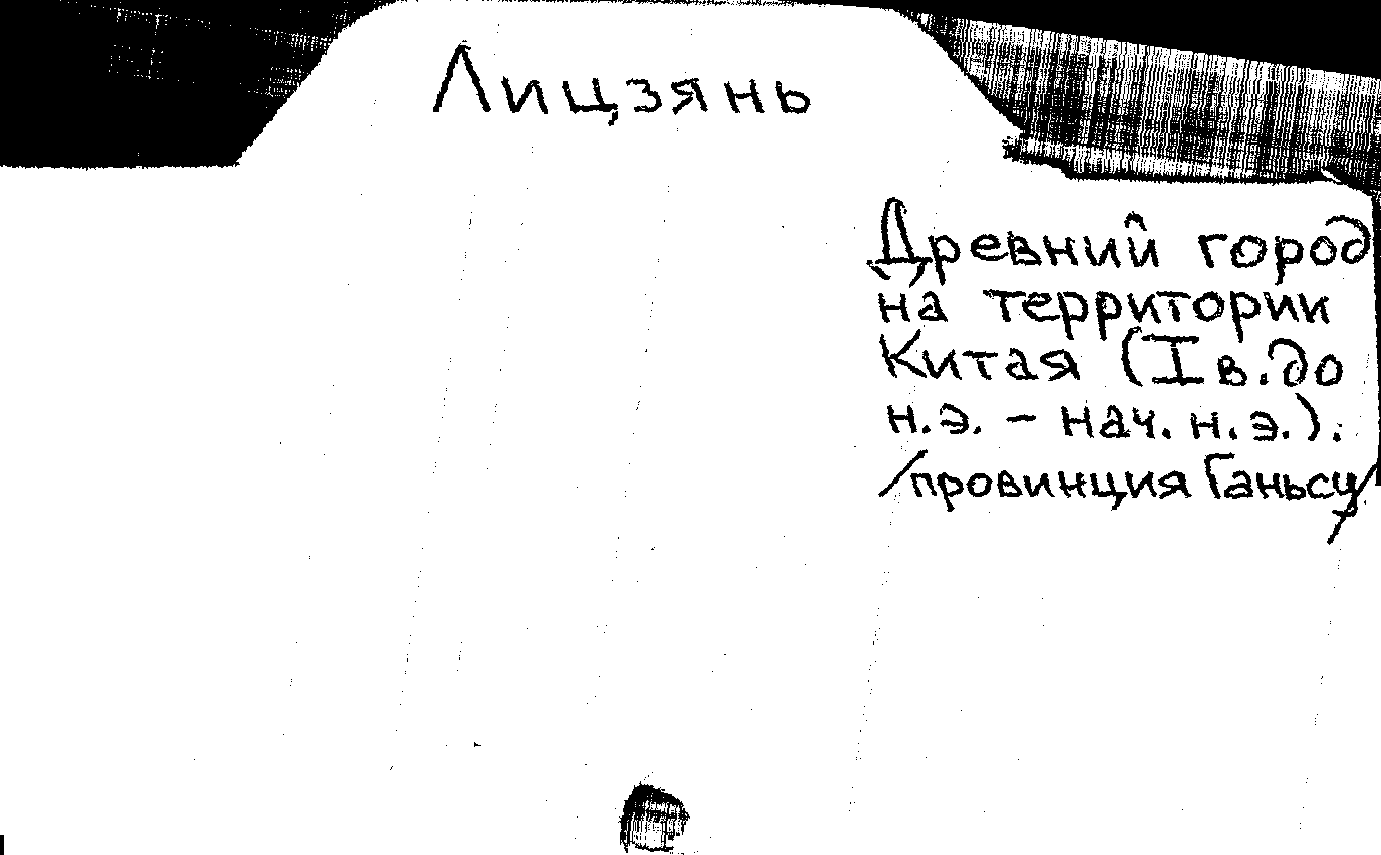 Лицзянь
Древний город
на территории
Китая (I в. до
н.э. – нач. н.э.).
/провинция Ганьсу/